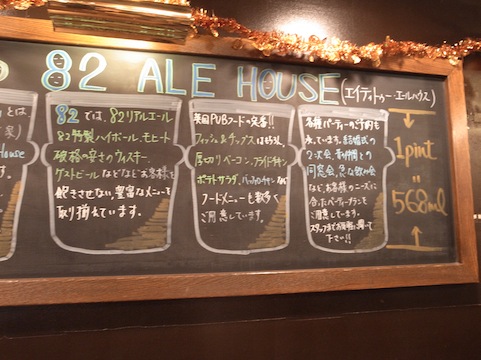 82 ALE HOUSE (エイティトゥー・エールハウス)
とは
泉)
House
82では、82リアルエール
82特製ハイボール、モヒート
破格の安さのウィスキー
ゲストビールなどなどお客様を
飽きさせない豊富なメニューを
取り揃えています。
英国PUBフードの定番!!
フィッシュ&チップスはもちろん
厚切りベーコン、フライドチキン
ポテトサラダ、
フードメニューも数多く
ご用意しています。
各種パーティーのご予約も
承っています。結婚式の
2次会、お仲間との
同窓会、急な飲み会
などなど、お客様のニーズに
合ったパーティープランを
ご用意しています。
スタッフまでお気軽に
下さい!!
1pint
=
568ml